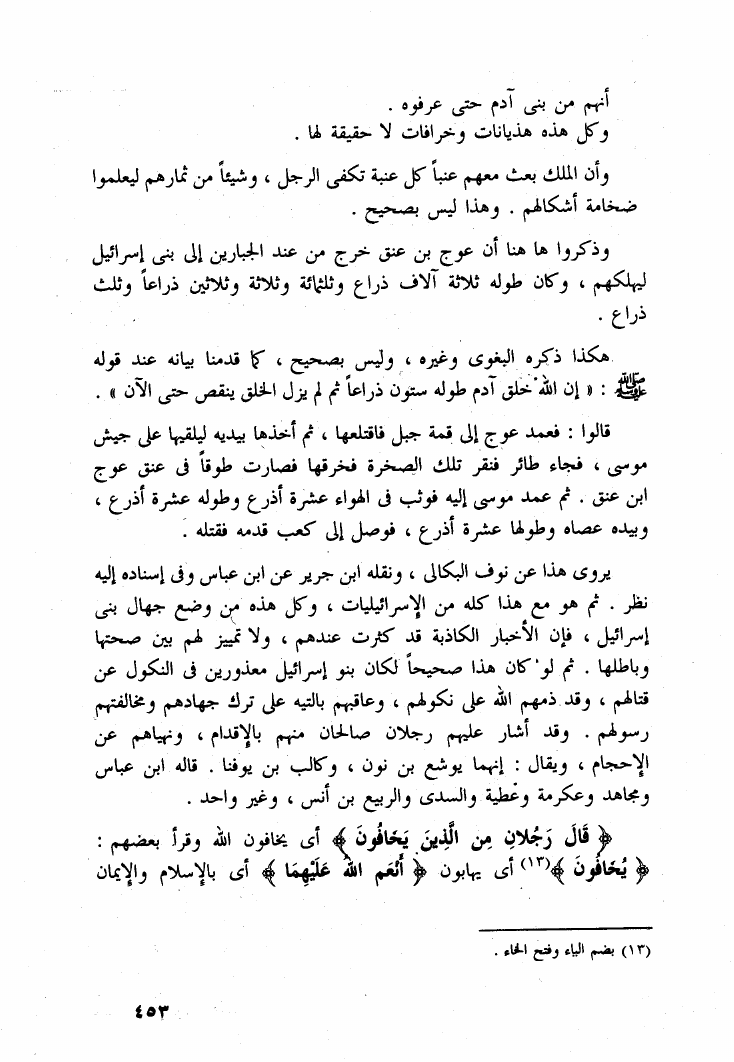 أنهم من بنى آدم حتى عرفوه .
وكل هذه هذيانات وخرافات لا حقيقة لها .
وأن الملك بعث معهم عنباً كل عنبة تكفى الرجل ، وشيئاً من ثمارهم ليعلموا
ضخامة أشكالهم . وهذا ليس بصحيح .
وذكروا ها هنا أن عوج بن عنق خرج من عند الجبارين إلى بنى إسرائيل
ليهلكهم ، وكان طوله ثلاثة آلاف ذراع وثلثمائة وثلاثة وثلاثين ذراعاً وثلث
ذراع .
هكذا ذكره البغوى وغيره ، وليس بصحيح ، كما قدمنا بيانه عند قوله
ﷺ : « إن الله خلق آدم طوله ستون ذراعاً ثم لم يزل الخلق ينقص حتى الآن » .
قالوا : فعمد عوج إلى قمة جبل فاقتلعها ، ثم أخذها بيديه ليلقيها على جيش
موسى ، فجاء طائر فنقر تلك الصخرة فخرقها فصارت طوقاً فى عنق عوج
ابن عنق . ثم عمد موسى إليه فوثب فى الهواء عشرة أذرع وطوله عشرة أذرع ،
وبيده عصاه وطولها عشرة أذرع ، فوصل إلى كعب قدمه فقتله .
يروى هذا عن نوف البكالى ، ونقله ابن جرير عن ابن عباس وفى إسناده إليه
نظر . ثم هو مع هذا كله من الإسرائيليات ، وكل هذه من وضع جهال بنى
إسرائيل ، فإن الأخبار الكاذبة قد كثرت عندهم ، ولا تمييز لهم بين صحتها
وباطلها . ثم لو كان هذا صحيحاً لكان بنو إسرائيل معذورين فى النكول عن
قتالهم ، وقد ذمهم الله على نكولهم ، وعاقبهم بالتيه على ترك جهادهم ومخالفتهم
رسولهم . وقد أشار عليهم رجلان صالحان منهم بالإقدام ، ونهياهم عن
الإحجام ، ويقال : إنهما يوشع بن نون ، وكالب بن يوفنا . قاله ابن عباس
ومجاهد وعكرمة وعطية والسدى والربيع بن أنس ، وغير واحد .
﴿ قَالَ رَجُلَانِ مِنَ الَّذِينَ يَخَافُونَ ﴾ أى يخافون الله وقرأ بعضهم :
﴿ يُخَافُونَ ﴾(١٣) أى يهابون ﴿ أَنْعَم اللهُ عَلَيْهِمَا ﴾ أى بالإسلام والإيمان
(١٣) بضم الياء وفتح الخاء .
٤٥٣